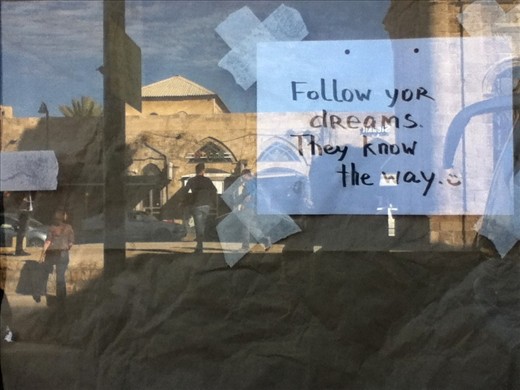 Follow yor
dreams.
They know
the way.